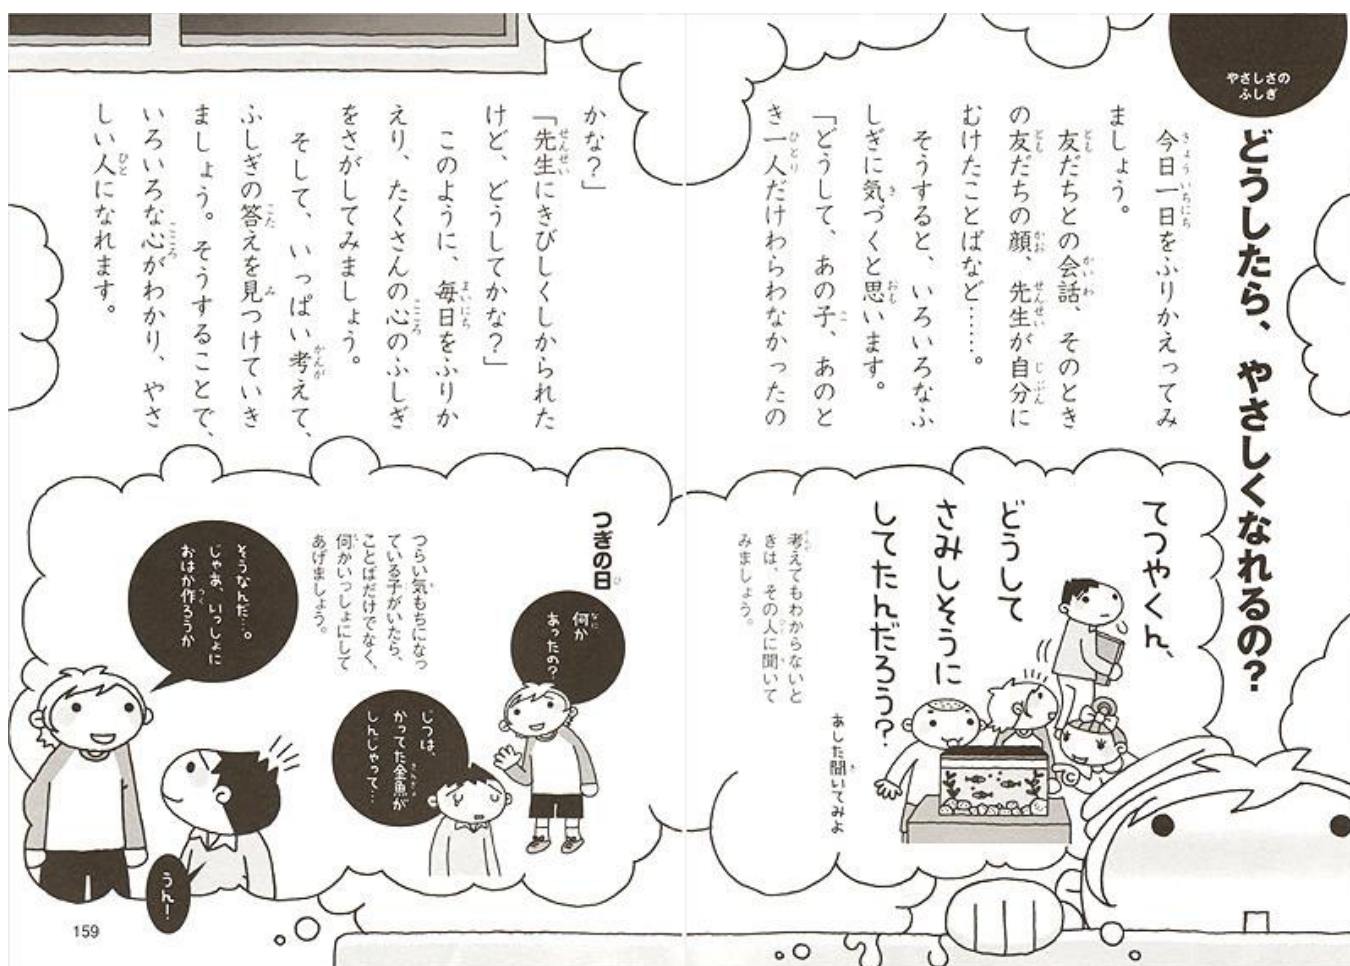 やさしさの
ふしぎ
どうしたら、やさしくなれるの？
今日一日をふりかえってみ
ましょう。
友だちとの会話、そのとき
の友だちの顔、先生が自分に
むけたことばなど……。
そうすると、いろいろなふ
しぎに気づくと思います。
「どうして、あの子、あのと
き一人だけわらわなかったの
かな？」
「先生にきびしくしかられた
けど、どうしてかな？」
このように、毎日をふりか
えり、たくさんの心のふしぎ
をさがしてみましょう。
そして、いっぱい考えて、
ふしぎの答えを見つけていき
ましょう。そうすることで、
いろいろな心がわかり、やさ
しい人になれます。
てつやくん、
どうして
さみしそうに
してたんだろう？
考えてもわからないと
きは、その人に聞いて
みましょう。
あした聞いてみよ
つぎの日
何か
あったの？
じつは、
かってた金魚が
しんじゃって…
つらい気もちになっ
ている子がいたら、
ことばだけでなく、
何かいっしょにして
あげましょう。
そうなんだ…。
じゃあ、いっしょに
おはか作ろうか
うん！
159